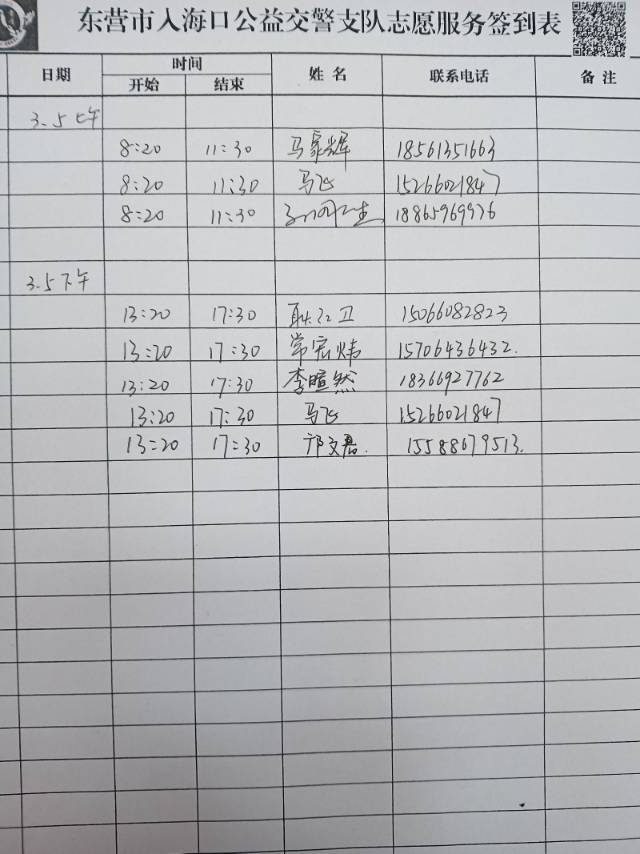 东营市入海口公益交警支队志愿服务签到表
日期 时间 姓名 联系电话 备注
开始 结束
3.5上午
8:20 11:30 马家辉 18561351663
8:20 11:30 马飞 15266021847
8:20 11:30 18865969976
3.5下午
13:20 17:30 耿江卫 15066082823
13:20 17:30 常宏炜 15706436432.
13:20 17:30 李暄然 18366927762
13:20 17:30 马飞 15266021847
13:20 17:30 邝文磊. 15588679513.